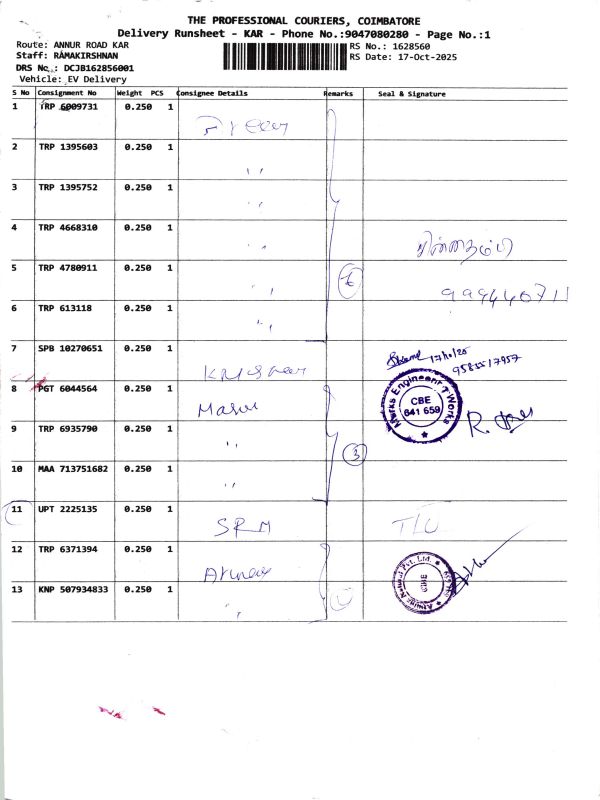 THE PROFESSIONAL COURIERS, COIMBATORE
Delivery Runsheet - KAR - Phone No.:9047080280 - Page No.:1
Route: ANNUR ROAD KAR
RS No.: 1628560
Staff: RAMAKIRSHNAN
RS Date: 17-Oct-2025
DRS No.: DCJB162856001
Vehicle: EV Delivery
S No Consignment No Weight PCS Consignee Details Remarks Seal & Signature
1 TRP 6009731 0.250 1
2 TRP 1395603 0.250 1 ,,
3 TRP 1395752 0.250 1 ,,
4 TRP 4668310 0.250 1 ,,
5 TRP 4780911 0.250 1 ,, 6
6 TRP 613118 0.250 1 ,,
7 SPB 10270651 0.250 1
17/10/25
8 PGT 6044564 0.250 1
Marks Engineering Works
CBE
641 659
9 TRP 6935790 0.250 1 ,, 3
10 MAA 713751682 0.250 1 ,,
11 UPT 2225135 0.250 1 SRM
12 TRP 6371394 0.250 1
Pvt. Ltd.
CBE
13 KNP 507934833 0.250 1 ,,